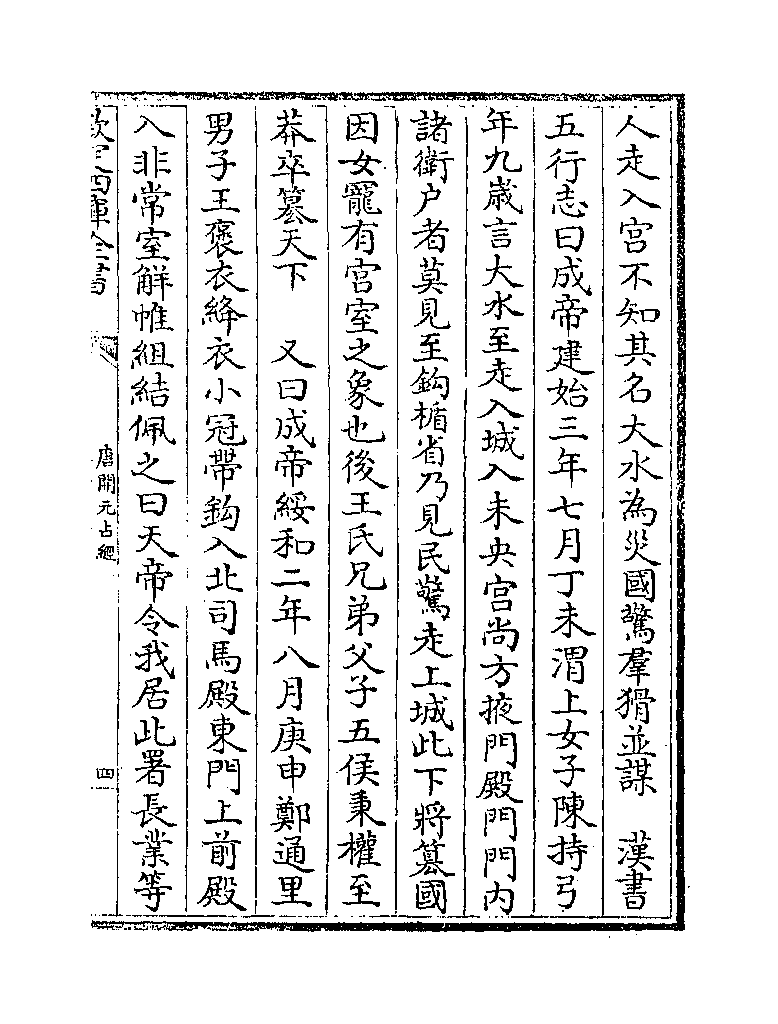 人走入宫不知其名大水為災國驚羣猾並謀　漢書
五行志曰成帝建始三年七月丁未渭上女子陳持弓
年九歲言大水至走入城入未央宫尚方掖門殿門門内
諸衛户者莫見至鈎楯省乃見民驚走上城此下將篡國
因女寵有宫室之象也後王氏兄弟父子五侯秉權至
莽卒篡天下　又曰成帝綏和二年八月庚申鄭通里
男子王褒衣絳衣小冠帶鈎入北司馬殿東門上前殿
入非常室解帷組結佩之曰天帝令我居此署長業等
欽定四庫全書
唐開元占經
四